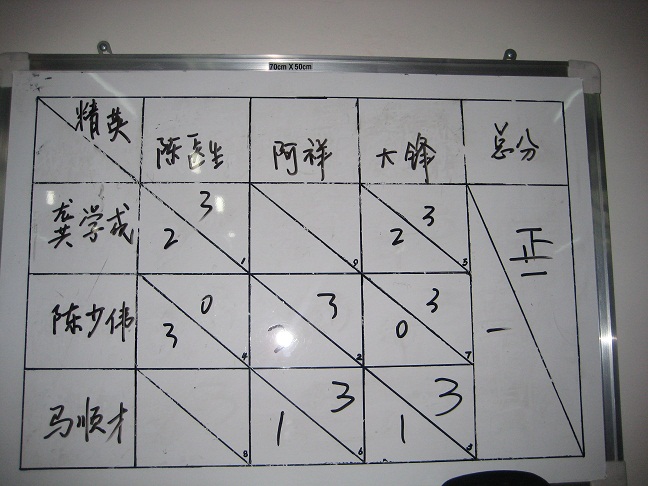 70cm X 50cm
精英 陈医生 阿祥 大锋 总分
龚学成 3 2 1 9 3 2 5 正一
陈少伟 0 3 4 3 2 3 0 7 一
马顺才 8 3 1 6 3 1